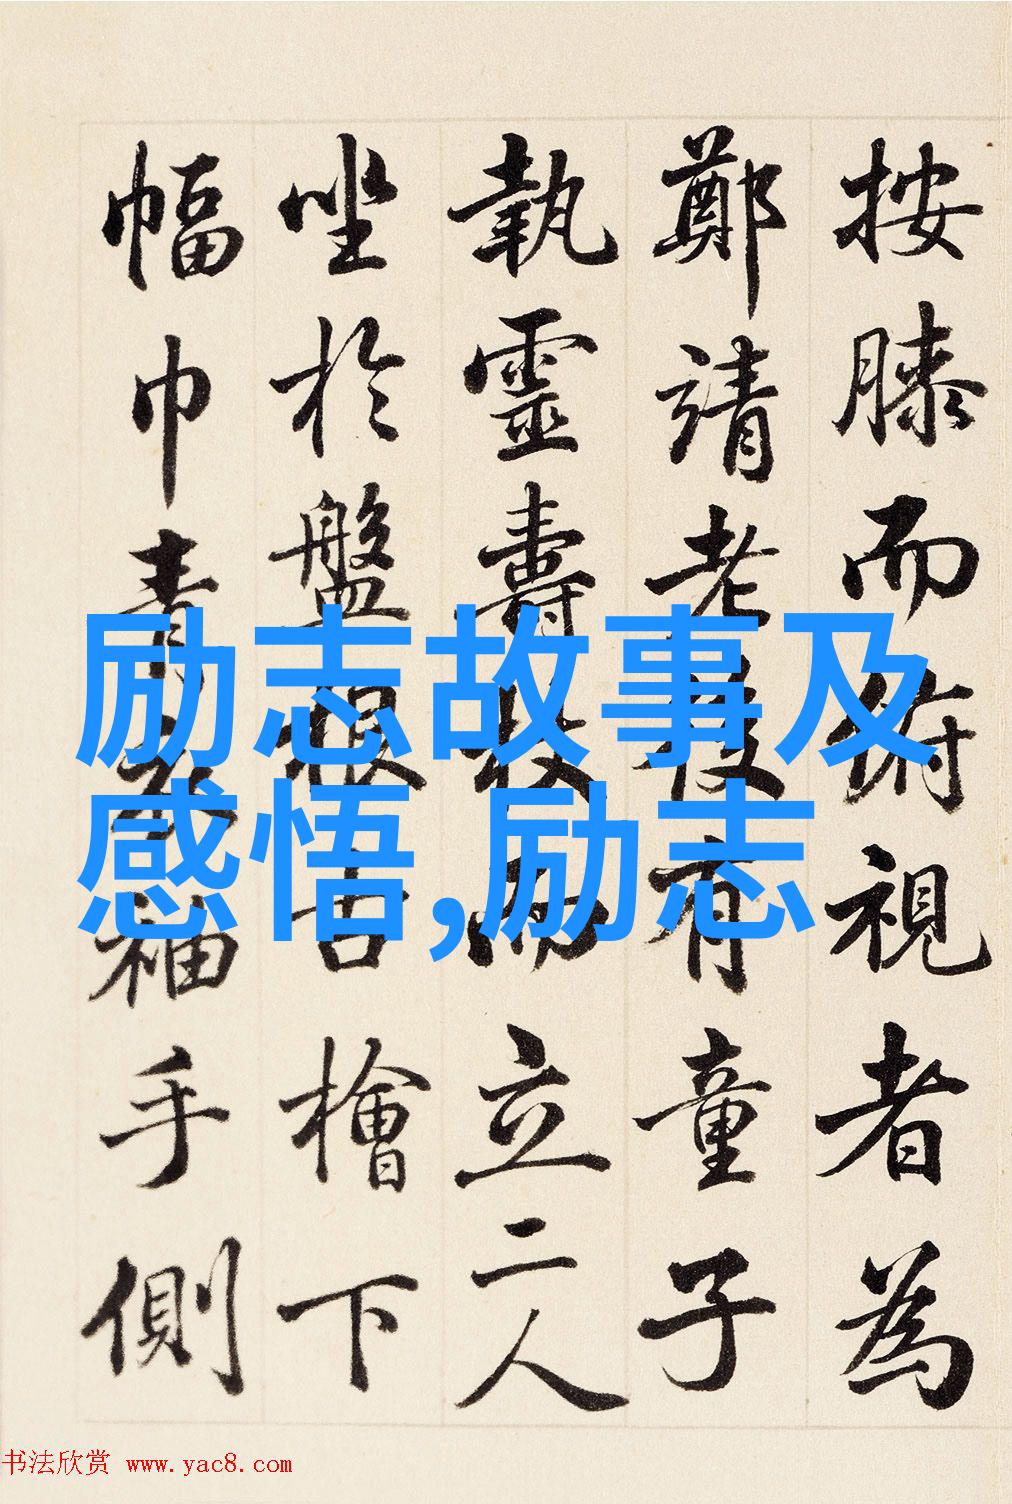 按膝而俯視者為
鄭靖老後有童子
執靈壽杖而立二人
坐於盤根古檜下
幅巾青衣袖手側
励志故事及
感悟,励志
书法欣赏 www.yac8.com